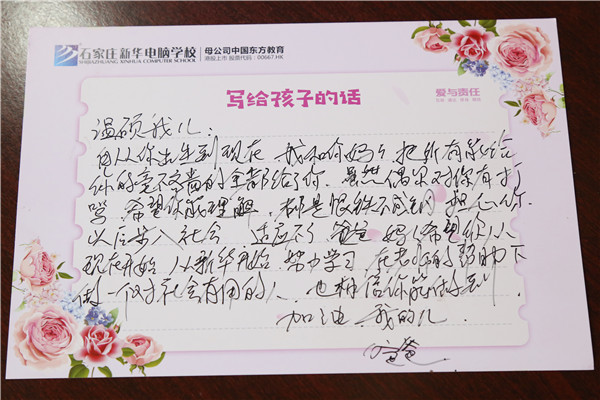 石家庄新华电脑学校
SHIJIAZHUANG XINHUA COMPUTER SCHOOL
母公司中国东方教育
港股上市 股票代码：00667.HK
写给孩子的话
爱与责任
温硕我儿：
自从你出生到现在 我和你妈妈 把所有能给
你的毫不吝啬的全部给了你. 虽然偶尔对你有打
骂. 希望你能理解. 都是恨铁不成钢 担心你
以后步入社会. 适应不了 爸爸 妈妈希望你从
现在开始. 从新华开始. 努力学习 在老师的帮助下
做一个对社会有用的人. 也相信你能做到.
加油. 我的儿.
爸爸